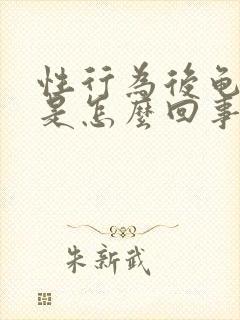 性行為後龟
是怎麼回事
朱新武